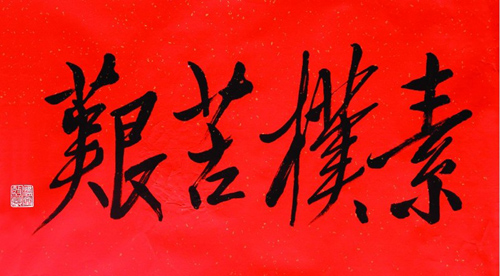 艱苦樸素